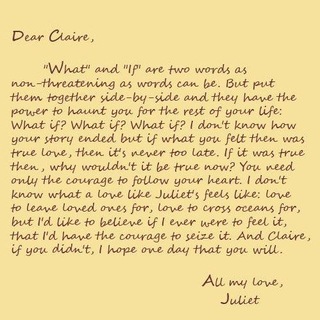 Dear Claire,
"What" and "If" are two words as
non-threatening as words can be. But put
them together side-by-side and they have the
power to haunt you for the rest of your life:
What if? What if? What if? I don't know how
your story ended but if what you felt then was
true love, then it's never too late. If it was true
then, why wouldn't it be true now? You need
only the courage to follow your heart. I don't
know what a love like Juliet's feels like: love
to leave loved ones for, love to cross oceans for,
but I'd like to believe if I ever were to feel it,
that I'd have the courage to seize it. And Claire,
if you didn't, I hope one day that you will.
All my love,
Juliet